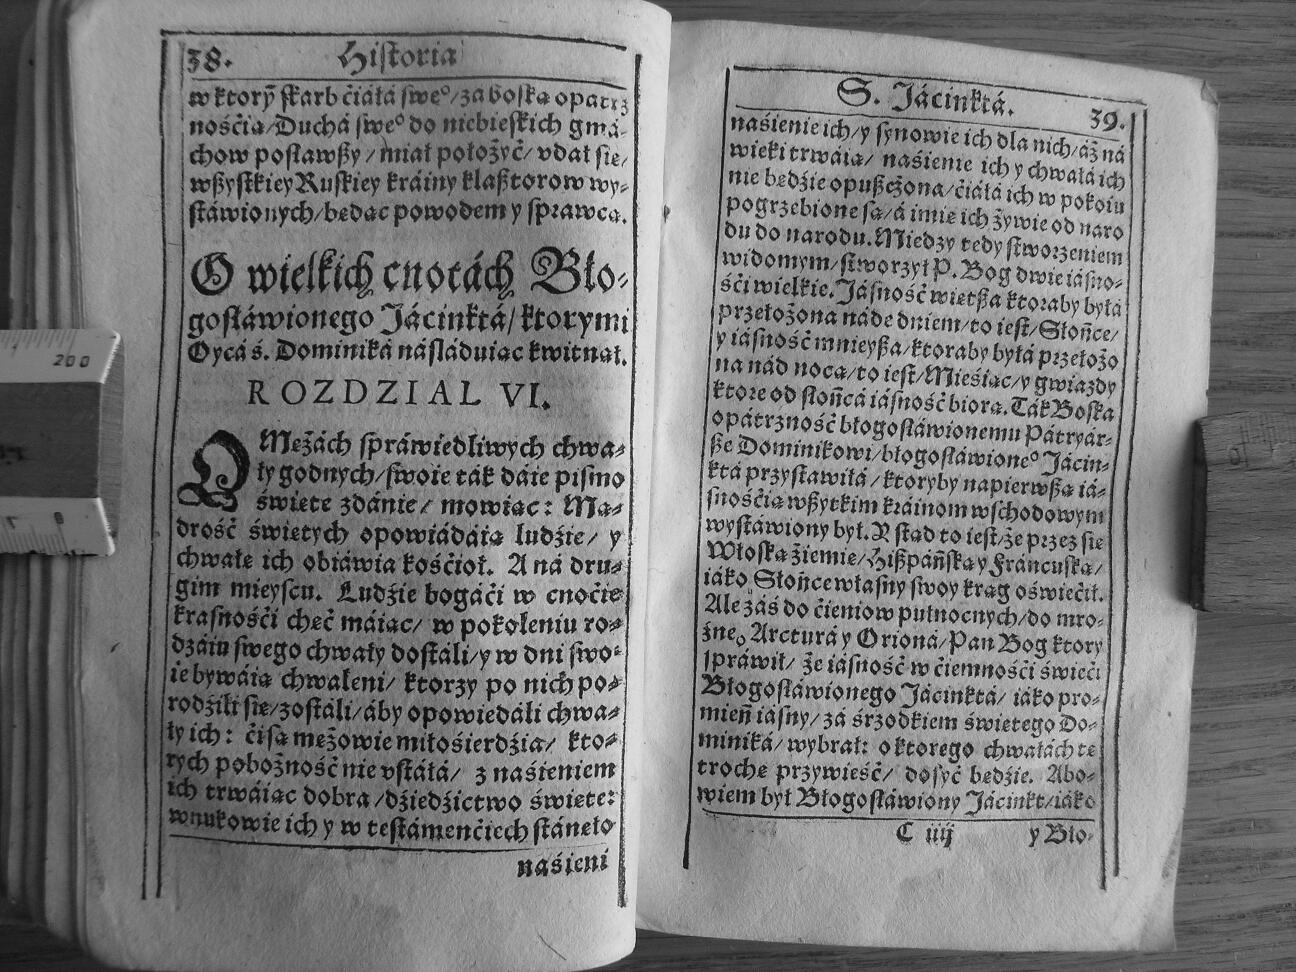 38. Historia
w ktorỹ skarb ćiáłá sweº/ zá boską opatrz
nośćią/ Duchá sweº do niebieskich gmá-
chow posławszy / miał położyć/ vdał sie/
wszystkiey Ruskiey kráiny klasztorow wy-
stáwionych/ będąc powodem y sprawcą.
O wielkich cnotách Bło-
gosłáwionego Jácinktá/ ktorymi
Oycá ś. Dominiká násláduiąc kwitnął.
ROZDZIAL VI.
O Mężách spráwiedliwych chwa-
ły godnych/ swoie ták dáie pismo
święte zdánie/ mowiąc: Mą-
drość świętych opowiádáią ludźie/ y
chwałę ich obiáwia kośćioł. A ná dru-
gim mieyscu. Ludźie bogáći w cnoćie
krasnośći chęć máiąc/ w pokoleniu ro-
dzáiu swego chwały dostáli/ y w dni swo-
ie bywáią chwaleni/ ktorzy po nich po-
rodźili się/ zostáli/ áby opowiedáli chwa-
ły ich: ći są mężowie miłośierdźia/ kto-
rych pobożność nie vstáłá/ z naśieniem
ich trwáiąc dobra / dźiedźictwo święte:
wnukowie ich y w testámenćiech stánęło
naśieni
S. Jácinktá. 39.
naśienie ich/ y synowie ich dla nich/ áż ná
wieki trwáią/ naśienie ich y chwałá ich
nie będźie opuszczona/ ćiáłá ich w pokoiu
pogrzebione są/ á imię ich żywie od naro
du do narodu. Miedzy tedy stworzeniem
widomym/ stworzył P. Bog dwie iásno-
śći wielkie. Jásność większa ktoraby byłá
przełożona náde dniem/ to iest/ Słońce/
y iásność mnieysza/ ktoraby byłá przełożo
na nád nocą/ to iest/ Mieśiąc/ y gwiazdy
ktore od słońcá iásność biorą. Ták Boska
opátrzność błogosłáwionemu Pátryár-
sze Dominikowi/ błogosłáwioneº Jácin-
ktá przystawiłá / ktoryby napierwszą iá-
snośćią wszytkim kráinom wschodowym
wystáwiony był. Y stąd to iest/ że przez się
Włoską źiemię/ Hiszpáńską y Francuską/
iáko Słońce własny swoy krąg oświećił.
Ale záś do ćieniow pułnocnych/ do mro-
źneº Arcturá y Orioná/ Pan Bog ktory
spráwił/ że iásność w ćiemnośći świeći
Błogosłáwionego Jácinktá/ iáko pro-
mień iásny/ zá śrzodkiem świętego Do-
miniká/ wybrał: o ktorego chwałách te
trochę przywieść/ dosyć będźie. Abo-
wiem był Błogosłáwiony Jácinkt/ iáko
C iiij y Bło-
200